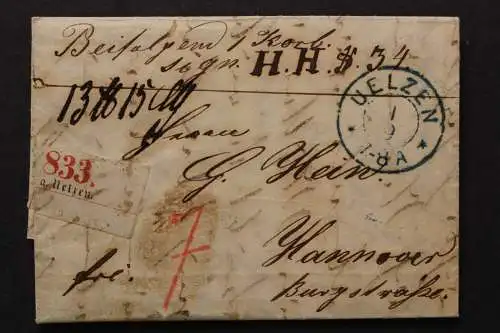 Beifolgend 1 Korb.
sign. H. H. $. 34
13 ℔ 15
UELZEN
7-8 A
833.
a. Uelzen.
Herrn
G. Hein.
7
Hannover
frei.
Burgstraße.